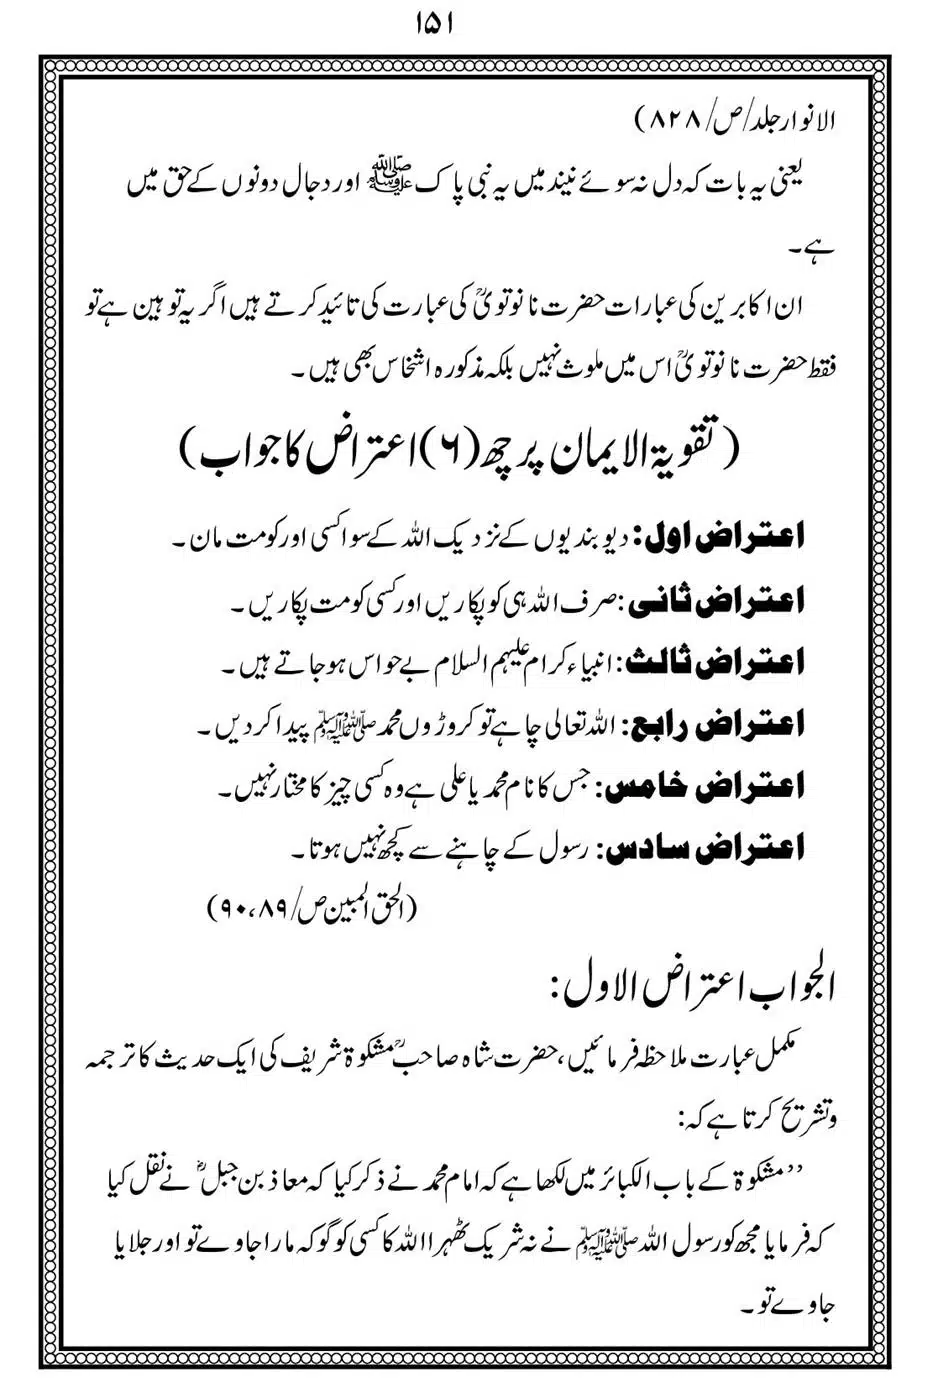 ۱۵۱
الانوار جلد/ص/۸۲۸)
یعنی یہ بات کہ دل نہ سوئے نیند میں یہ نبی پاک ﷺ اور دجال دونوں کے حق میں
ہے۔
ان اکابرین کی عبارات حضرت نانوتویؒ کی عبارت کی تائید کرتے ہیں اگر یہ توہین ہے تو
فقط حضرت نانوتویؒ اس میں ملوث نہیں بلکہ مذکورہ اشخاس بھی ہیں۔
(تقویۃ الایمان پر چھ(۶)اعتراض کا جواب)
اعتراض اول: دیوبندیوں کے نزدیک اللہ کے سوا کسی اور کو مت مان۔
اعتراض ثانی: صرف اللہ ہی کو پکاریں اور کسی کو مت پکاریں۔
اعتراض ثالث: انبیاء کرام علیہم السلام بے حواس ہو جاتے ہیں۔
اعتراض رابع: اللہ تعالی چاہے تو کروڑوں محمد ﷺ پیدا کر دیں۔
اعتراض خامس: جس کا نام محمد یا علی ہے وہ کسی چیز کا مختار نہیں۔
اعتراض سادس: رسول کے چاہنے سے کچھ نہیں ہوتا۔
(الحق المبین ص/۸۹،۹۰)
الجواب اعتراض الاول:
مکمل عبارت ملاحظہ فرمائیں، حضرت شاہ صاحبؒ مشکوۃ شریف کی ایک حدیث کا ترجمہ
وتشریح کرتا ہے کہ:
’’مشکوۃ کے باب الکبائر میں لکھا ہے کہ امام محمد نے ذکر کیا کہ معاذ بن جبلؓ نے نقل کیا
کہ فرمایا مجھ کو رسول اللہ ﷺ نے نہ شریک ٹھہرا اللہ کا کسی کو گو کہ مارا جاوے تو اور جلایا
جاوے تو۔